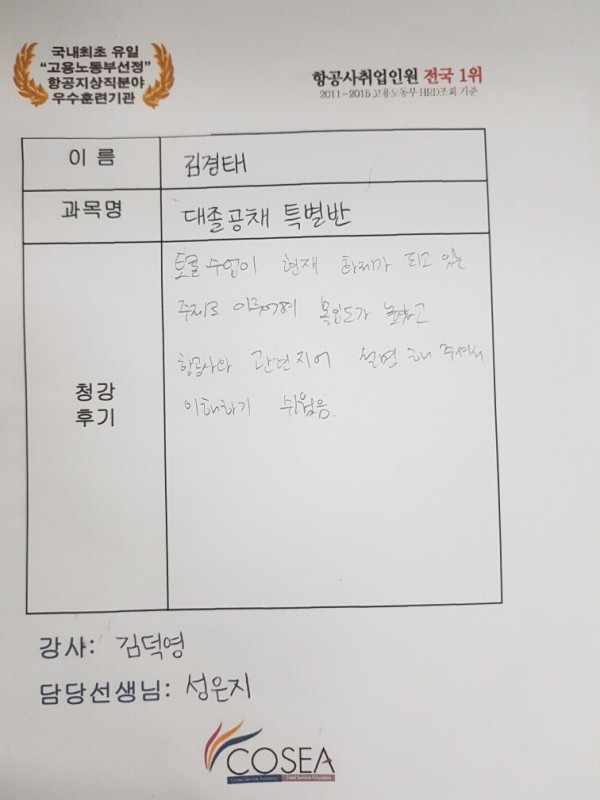 국내최초 유일
"고용노동부선정"
항공지상직분야
우수훈련기관
항공사취업인원 전국 1위
2011-2015 고용노동부 HRD조회 기준
이 름
김경태
과목명
대졸공채 특별반
청강
후기
토론 수업이 현재 화제가 되고 있는
주제로 이루어져 몰입도가 높았고
항공사와 관련지어 설명 해 주셔서
이해하기 쉬웠음.
강사: 김덕영
담당선생님: 성은지
COSEA
Corea Service Academy Total Service Education